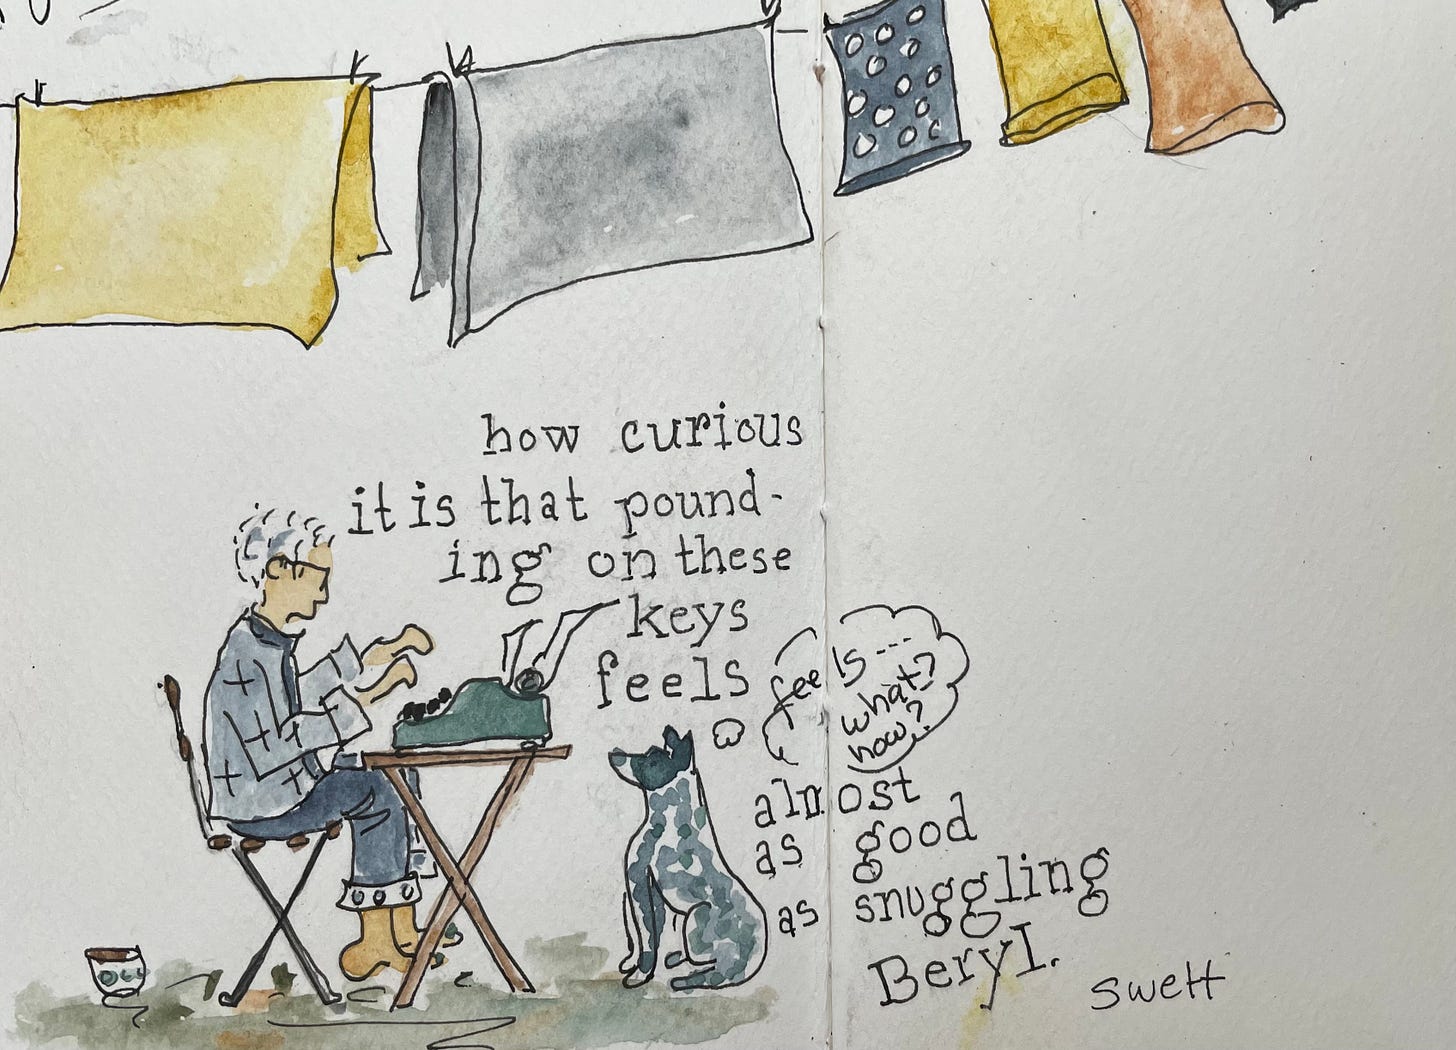 how curious
it is that pound-
ing on these
keys
feels
feels ---
what?
how?
almost
as good
as snuggling
Beryl.
Swett